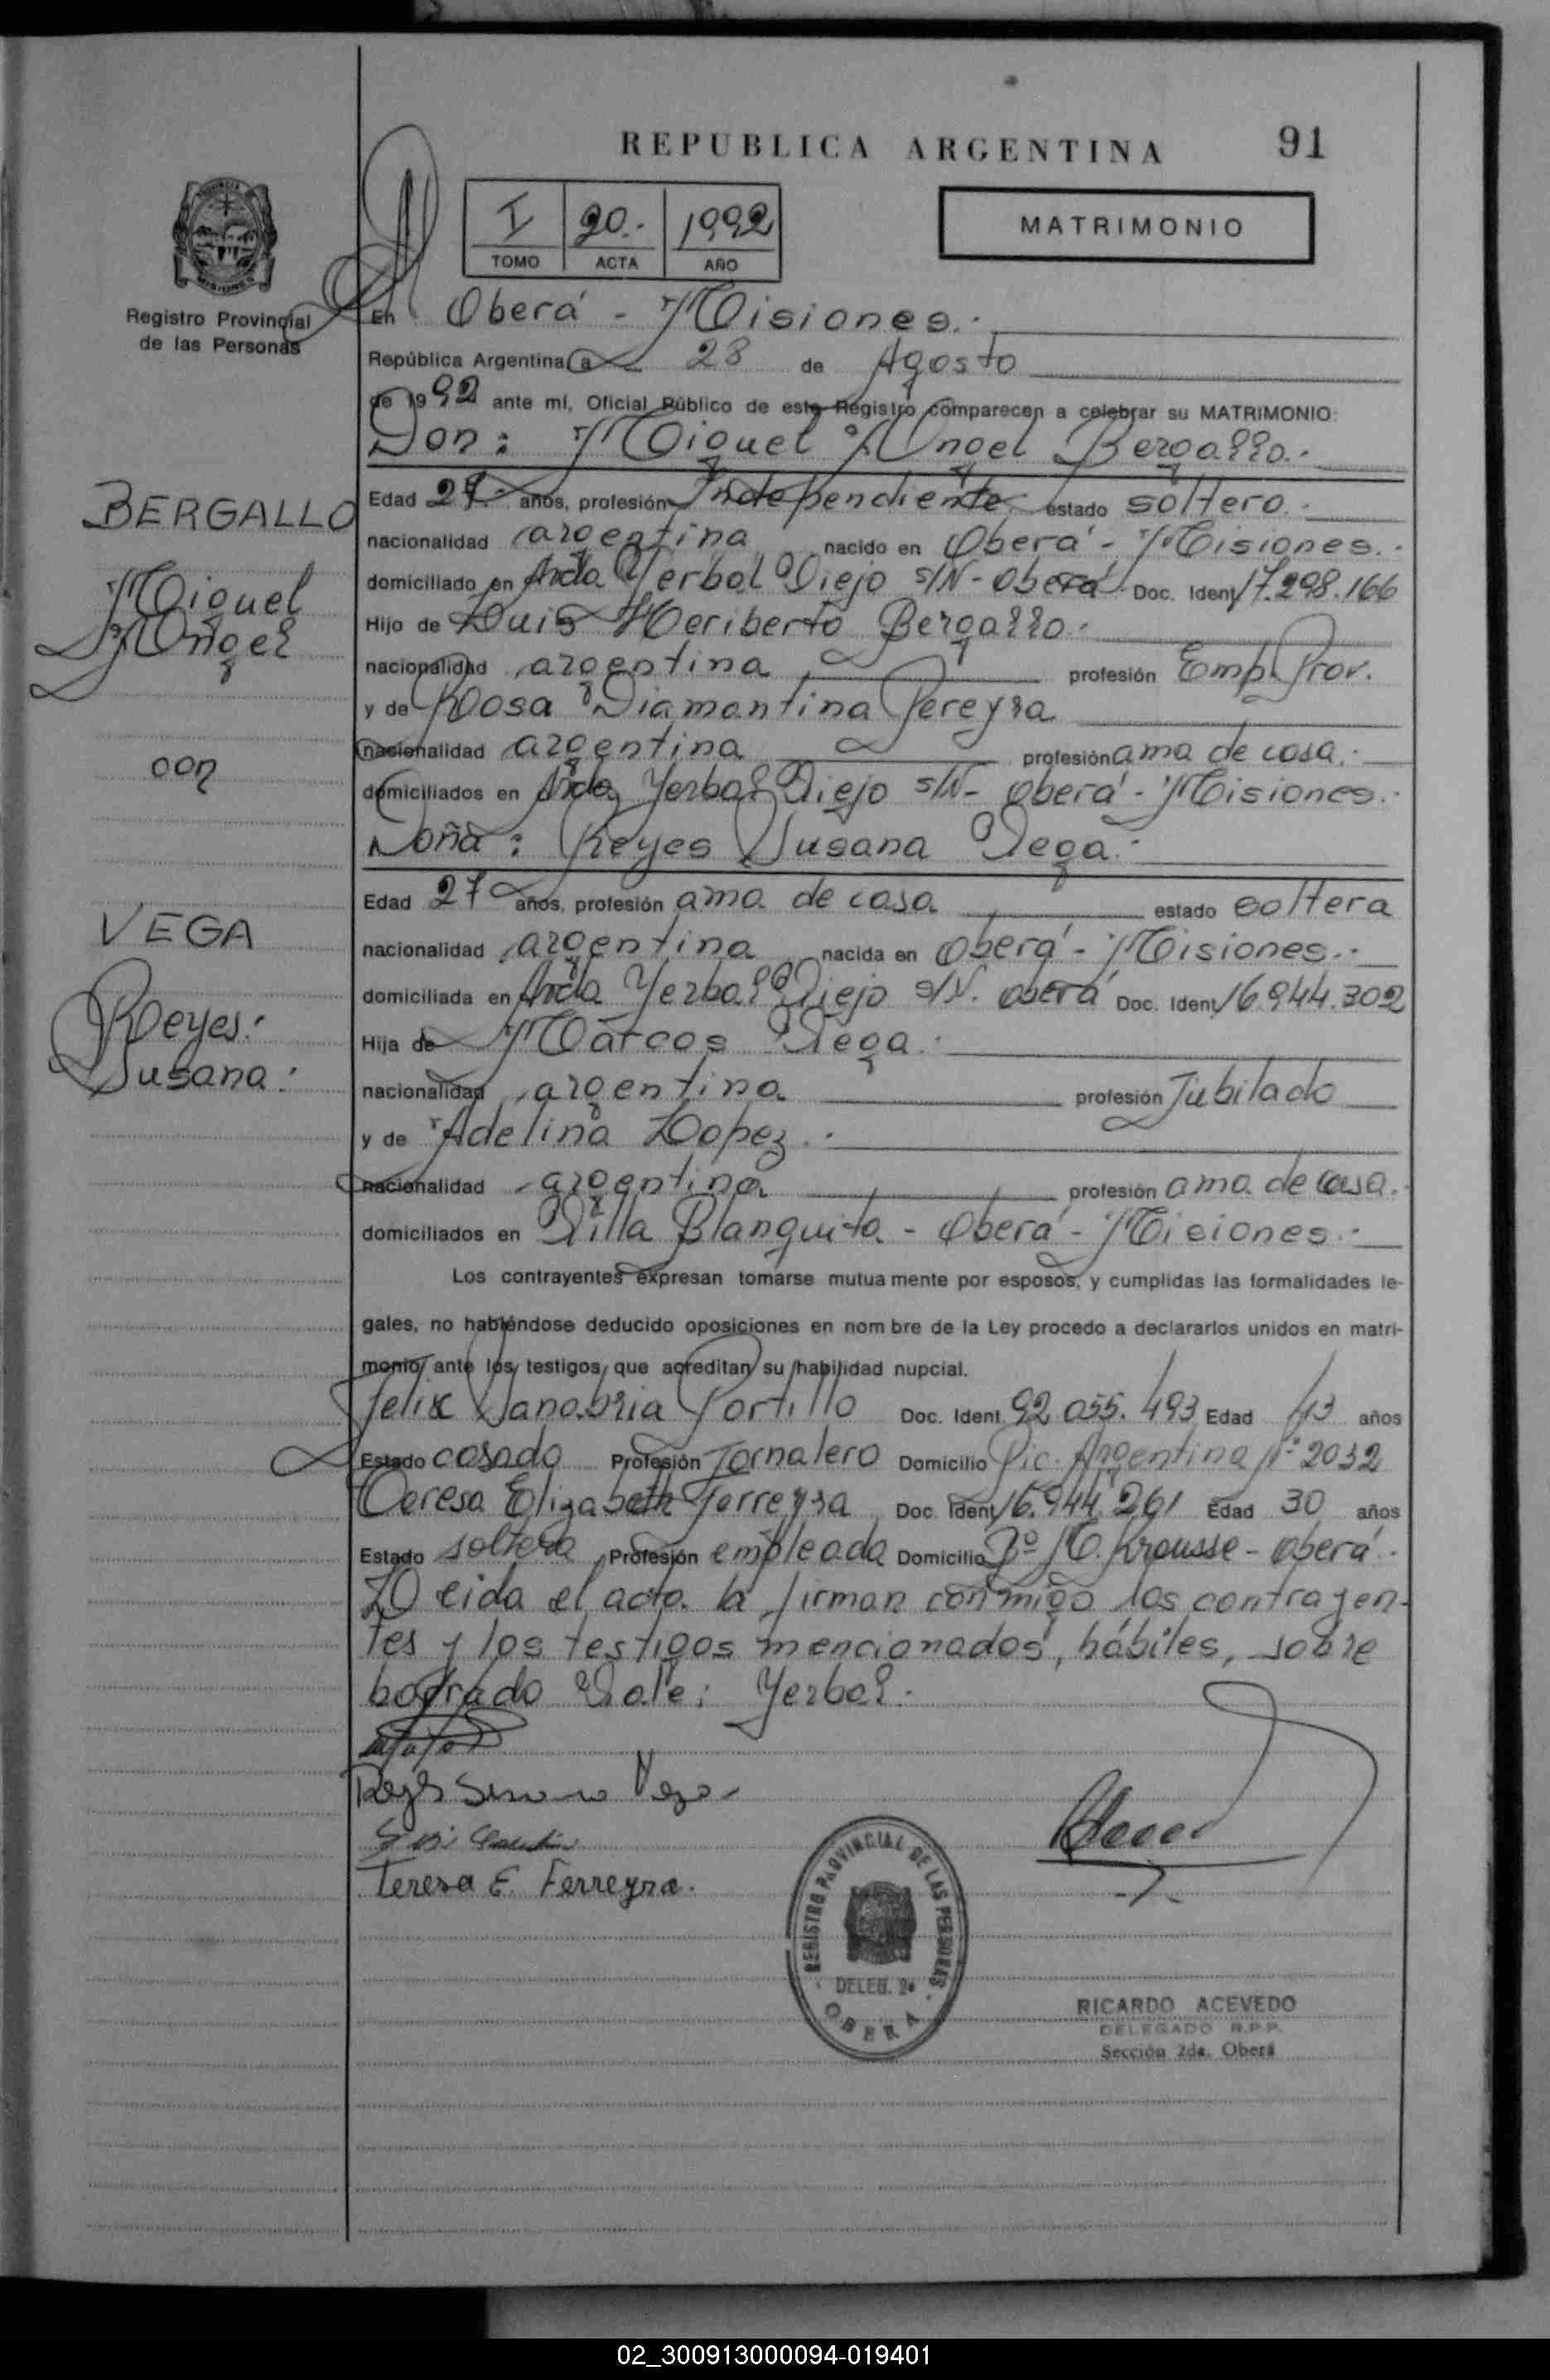 REPUBLICA ARGENTINA 91
I 90.- 1992
TOMO ACTA AÑO
MATRIMONIO
PROVINCIA
MISIONES
Registro Provincial
de las Personas
En Oberá - Misiones.-
República Argentina a 28 de Agosto
de 1992 ante mí, Oficial Público de este Registro comparecen a celebrar su MATRIMONIO:
Don: Miguel Angel Bergallo.-
BERGALLO
Miguel
Angel
con
Edad 27.- años, profesión Independiente estado soltero.-
nacionalidad argentina nacido en Oberá - Misiones.-
domiciliado en Avda Yerbal Viejo s/N - Oberá Doc. Ident 17.298.166
Hijo de Luis Heriberto Bergallo.-
nacionalidad argentina profesión Emp. Prov.
y de Rosa Diamantina Pereyra
nacionalidad argentina profesión ama de casa.-
domiciliados en Avda Yerbal Viejo s/N - Oberá - Misiones.-
Doña: Reyes Susana Vega.-
VEGA
Reyes.-
Susana.-
Edad 27 años, profesión ama de casa estado soltera
nacionalidad argentina nacida en Oberá - Misiones.-
domiciliada en Avda Yerbal Viejo s/N. Oberá Doc. Ident 16.944.302
Hija de Marcos Vega.-
nacionalidad argentina profesión Jubilado
y de Adelina Lopez.-
nacionalidad argentina profesión ama de casa.-
domiciliados en Villa Blanquita - Oberá - Misiones.-
Los contrayentes expresan tomarse mutuamente por esposos, y cumplidas las formalidades le-
gales, no habiéndose deducido oposiciones en nombre de la Ley procedo a declararlos unidos en matri-
monio, ante los testigos, que acreditan su habilidad nupcial.
Felix Sanabria Portillo Doc. Ident. 92.055.493 Edad 43 años
Estado casado Profesión Jornalero Domicilio Pic. Argentina N° 2032
Teresa Elizabeth Ferreyra Doc. Ident 16.944.261 Edad 30 años
Estado soltera Profesión empleada Domicilio B° M. Krausse - Oberá.-
Leida el acta la firman conmigo los contrayen-
tes y los testigos mencionados, hábiles, sobre
borrado Vale: Yerbal.-
Reyes Susana Vega
Teresa E. Ferreyra.
REGISTRO PROVINCIAL DE LAS PERSONAS
DELEG. 2a
OBERA
RICARDO ACEVEDO
DELEGADO R.P.P.
Sección 2da. Oberá
02_300913000094-019401